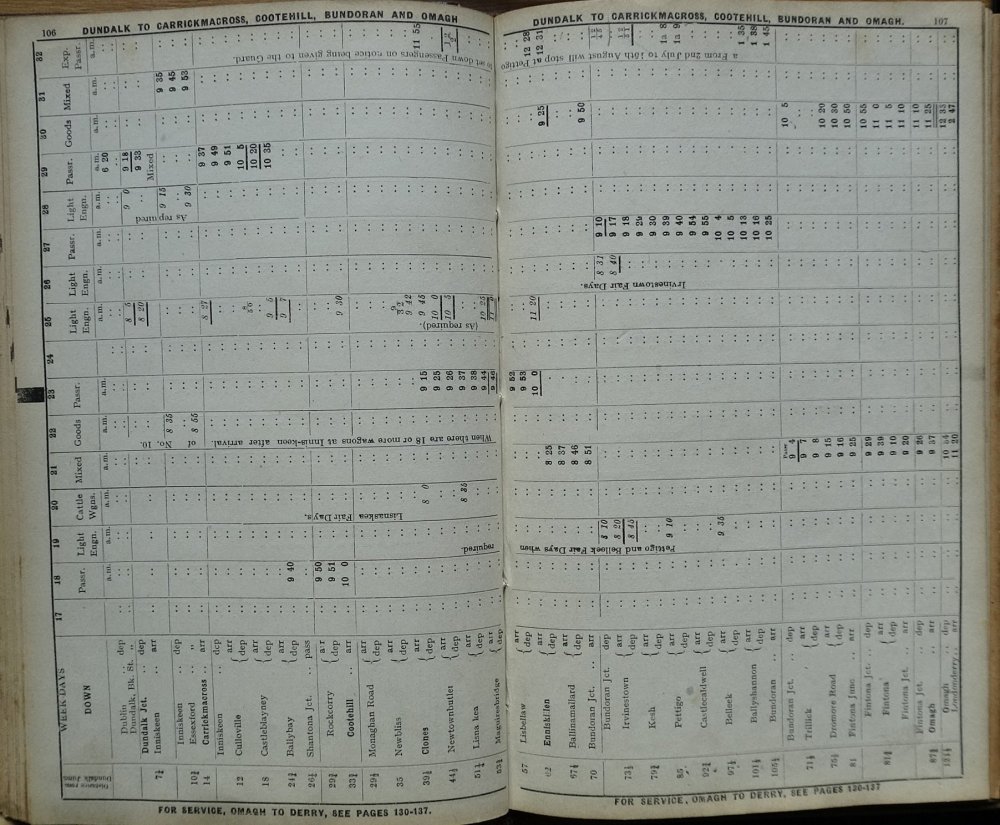 106 DUNDALK TO CARRICKMACROSS, COOTEHILL, BUNDORAN AND OMAGH
WEEK DAYS
DOWN
Distance from Dundalk Junc.
17 18 19 20 21 22 23 24 25 26 27 28 29 30 31 32
Passr. Light Engn. Cattle Wgns. Mixed Goods Passr. Light Engn. Light Engn. Passr. Light Engn. Passr. Goods Mixed Exp. Passr.
a.m. a.m. a.m. a.m. a.m. a.m. a.m. a.m. a.m. a.m. a.m. a.m. a.m. a.m.
Dublin .. dep 6 20
Dundalk, Bk. St. "
Dundalk Jct. .. dep 8 5 9 0 9 18
7½ Inniskeen .. arr 8 20 9 33
Mixed
Inniskeen .. dep 8 35 9 15 9 35
10½ Essexford .. " 9 45
14 Carrickmacross .. arr 8 55 9 30 9 53
Inniskeen .. dep 8 27 9 37
12 Culloville { arr 9 49
dep 9 51
18 Castleblayney { arr 10 5
dep 9 5 10 20
24¾ Ballybay { arr 9 7 10 35
dep 9 40
26½ Shantona Jct. .. pass
29¾ Rockcorry { arr 9 50
dep 9 51 9 30
33¾ Cootehill .. arr 10 0
29½ Monaghan Road
35 Newbliss { arr
dep 9 42
39½ Clones { arr 9 45
dep 8 0 9 15 10 0 11 55
44½ Newtownbutler { arr 9 25 10 5
dep 9 26
51¼ Lisnaskea { arr 8 35 9 37
dep 9 38 10 25
53¾ Maguiresbridge { arr 9 44
dep 9 46
required.
Lisnaskea Fair Days.
When there are 18 or more wagons at Innis-keen after arrival of No. 10.
(As required).
As required
to set down Passengers on notice being given to the Guard.
FOR SERVICE, OMAGH TO DERRY, SEE PAGES 130-137.
DUNDALK TO CARRICKMACROSS, COOTEHILL, BUNDORAN AND OMAGH. 107
57 Lisbellaw { arr 9 52
dep 9 53 12 28
62 Enniskillen { arr 10 0 11 20 12 31
dep 8 25 9 25
67¼ Ballinamallard { arr 8 37
dep 8 46
70 Bundoran Jct. .. arr 8 51 9 50
Bundoran Jct. dep 8 10 8 31 9 10
73½ Irvinestown { arr 8 20 8 40 9 17
dep 8 45 9 18
79¾ Kesh { arr 9 29
dep 9 30
85 Pettigo { arr 9 10 9 39 1a 8
dep 9 40 1a 9
92¼ Castlecaldwell { arr 9 54
dep 9 55
97½ Belleek { arr 9 35 10 4
dep 10 5
101½ Ballyshannon { arr 10 13 1 35
dep 10 16 1 38
105½ Bundoran .. arr 10 25 1 45
Bundoran Jct. .. dep 9 4 10 5
71½ Trillick { arr 9 7
dep 9 8
75½ Dromore Road { arr 9 15 10 20
dep 9 16 10 30
81 Fintona Junc. .. arr 9 25 10 50
Fintona Jct. .. dep 9 29 10 55
81¾ Fintona { arr 9 39 11 0
dep 9 10 11 5
Fintona Jct. .. arr 9 20 11 10
Fintona Jct. dep 9 26 11 10
87¾ Omagh .. arr 9 37 11 25
Omagh .. dep 10 54 12 35
Londonderry.. arr 11 20 2 47
Pettigo and Belleek Fair Days when
Irvinestown Fair Days.
a From 2nd July to 15th August will stop at Pettigo
FOR SERVICE, OMAGH TO DERRY, SEE PAGES 130-137